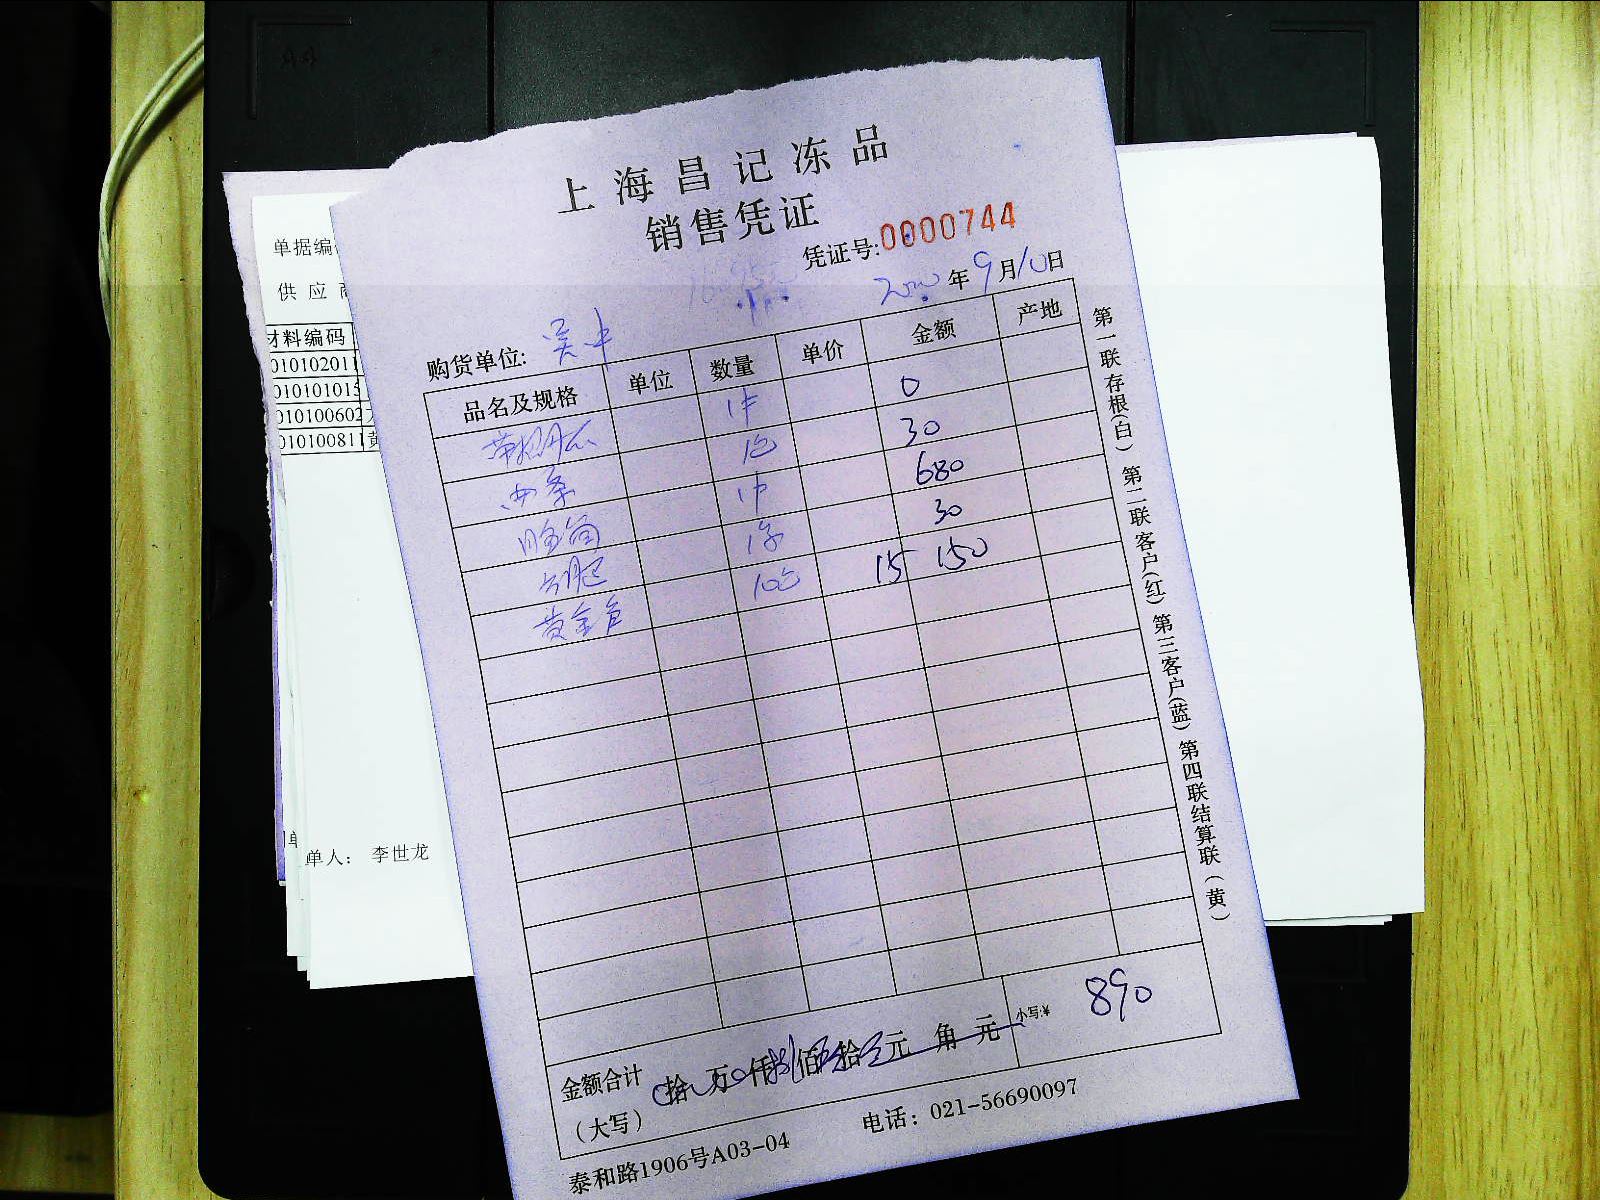 上海昌记冻品
销售凭证
凭证号:0000744
年9月10日
购货单位: 吴中
品名及规格 单位 数量 单价 金额 产地
1件 0
西条 1包 30
1件 680
30
黄金 10包 15 150
金额合计 拾 万 仟 佰 拾 元 角 元 小写:¥ 890
(大写)
泰和路1906号A03-04 电话: 021-56690097
第一联存根(白) 第二联客户(红) 第三客户(蓝) 第四联结算联(黄)
单据编
供应商
材料编码
010102011
010101015
010100602
010100811 黄
单人: 李世龙